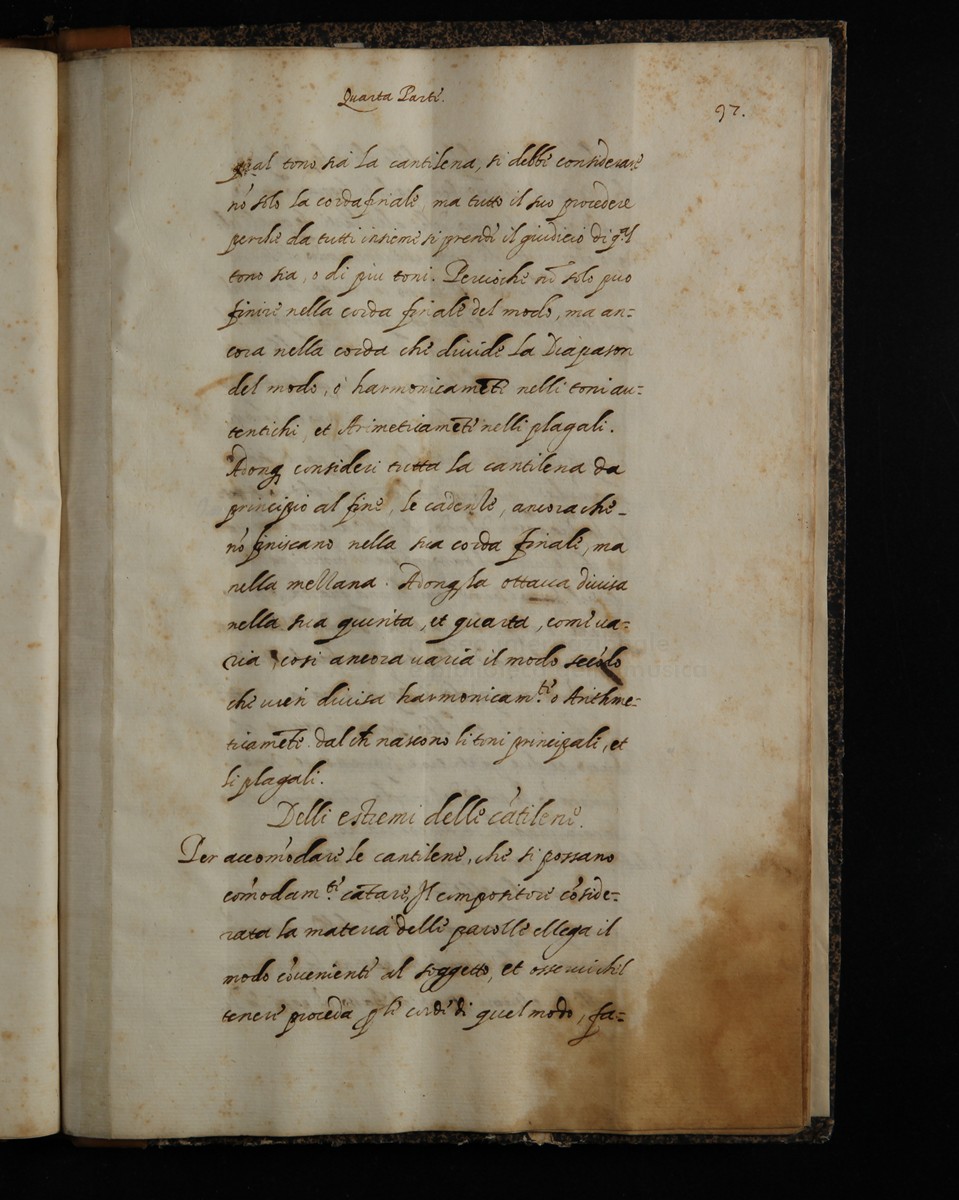 Quarta Parte.
97.
qual tono sia la cantilena, si debbe considerare
nō solo la corda finale, ma tutto il suo procedere
perche da tutti insieme si prende il giudicio di q.al
tono sia, o di piu toni. Percioche nō solo puo
finire nella corda finale del modo, ma an=
cora nella corda che divide la Diapason
del modo, ó harmonicamēte nelli toni au=
tentichi, et Arimeticamēte nelli plagali.
Adonq consideri tutta la cantilena da
principio al fine, le cadenze, ancora che
nō finiscano nella sua corda finale, ma
nella mezzana. Adonq la ottava divisa
nella sua quinta, et quarta, come va=
ria cosi ancora varia il modo secōdo
che vien divisa harmonicam.te o Arithme=
ticamēte. dal ch nascono li toni principali, et
li plagali.
Delli estremi delle cātilene.
Per accomōdare le cantilene, che si possano
comōdam.te cātare, Il compositore cōside=
rata la materia delle parolle ellega il
modo cōveniente al soggetto, et osservi chel
tenere proceda p le corde di quel modo, fa=